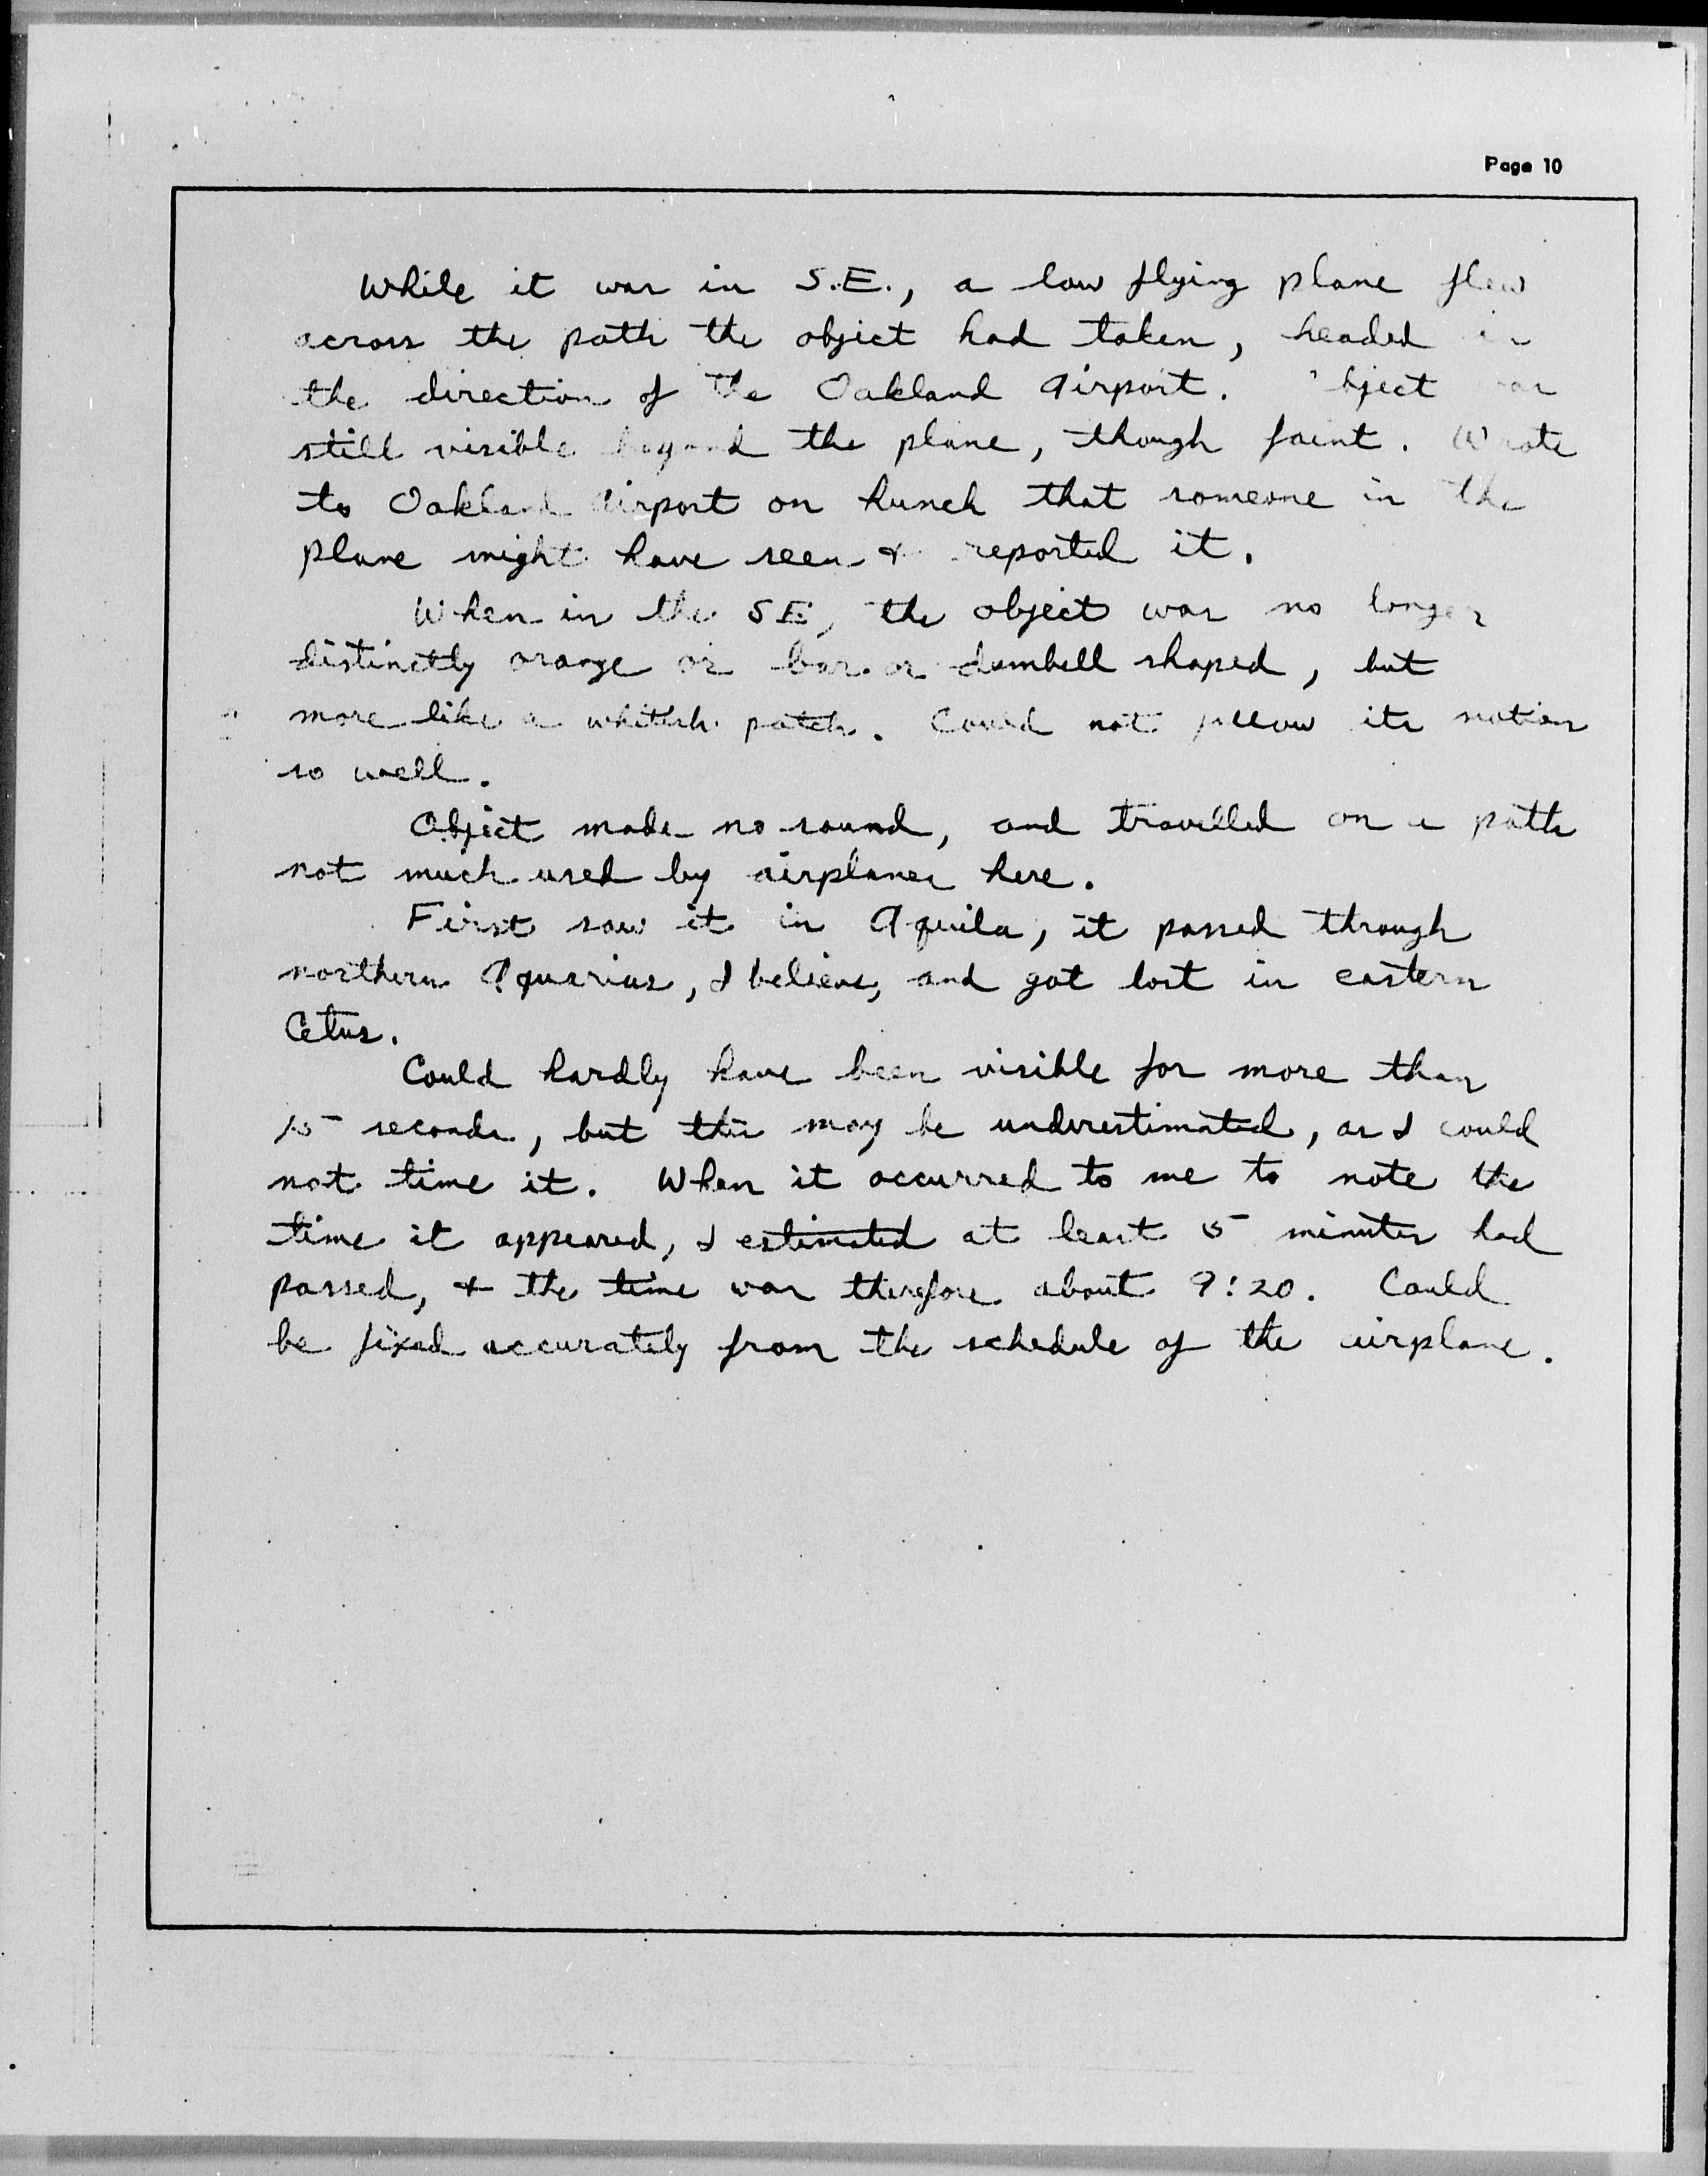 Page 10
While it was in S.E., a low flying plane flew
across the path the object had taken, headed in
the direction of the Oakland Airport. Object was
still visible beyond the plane, though faint. Wrote
to Oakland Airport on hunch that someone in the
plane might have seen & reported it.
When in the SE, the object was no longer
distinctly orange or bar or dumbell shaped, but
more like a whitish patch. Could not follow its motion
so well.
Object made no sound, and travelled on a path
not much used by airplanes here.
First saw it in Aquila, it passed through
northern Aquarius, I believe, and got lost in eastern
Cetus.
Could hardly have been visible for more than
15 seconds, but this may be underestimated, as I could
not time it. When it occurred to me to note the
time it appeared, I estimated at least 5 minutes had
passed, & the time was therefore about 9:20. Could
be fixed accurately from the schedule of the airplane.